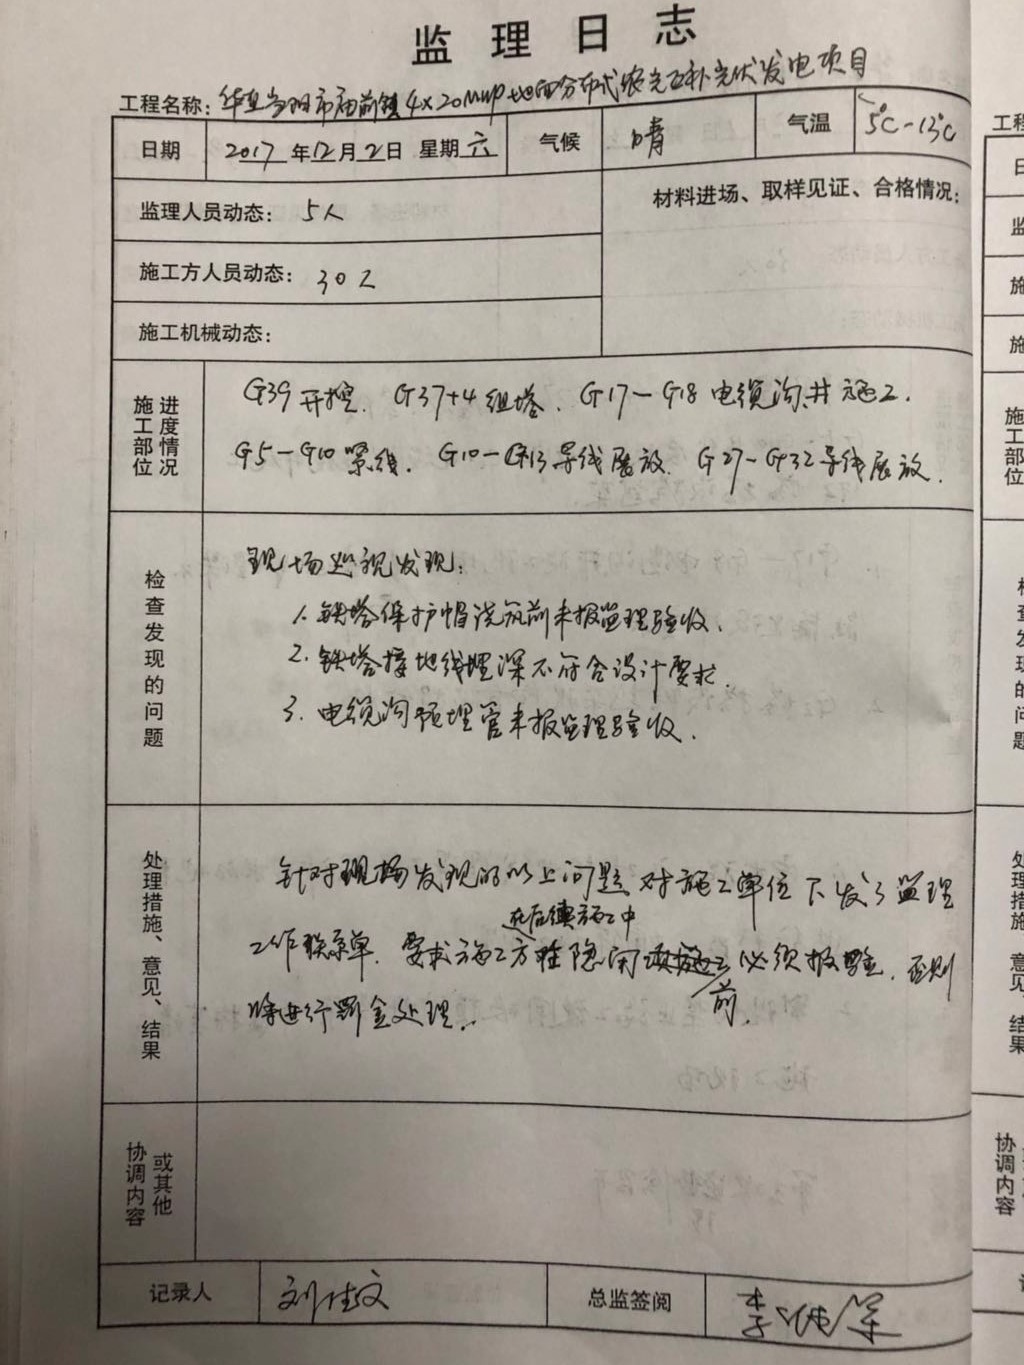 监理日志
工程名称：华 当阳市庙前镇4×20MWp地面分布式农光互补光伏发电项目
日期 2017年12月2日 星期六 气候 晴 气温 5℃-13℃
监理人员动态：5人
材料进场、取样见证、合格情况：
施工方人员动态：30人
施工机械动态：
施工部位 进度情况
G39开挖、G37+4组塔、G17-G18电缆沟、井施工.
G5-G10紧线、G10-G13导线展放、G27-G32导线展放.
检查发现的问题
现场巡视发现：
1. 铁塔保护帽浇筑前未报监理验收.
2. 铁塔接地线埋深不符合设计要求.
3. 电缆沟预埋管未报监理验收.
处理措施、意见、结果
针对现场发现的以上问题对施工单位下发了监理
在后续施工中
工作联系单.要求施工方 隐 必须报验.否则
前
将进行罚金处理.
协调内容 或其他
记录人 刘佳文 总监签阅 李
工程
施
施
施工部位
检查发现的问题
处理措施、意见、结果
协调内容